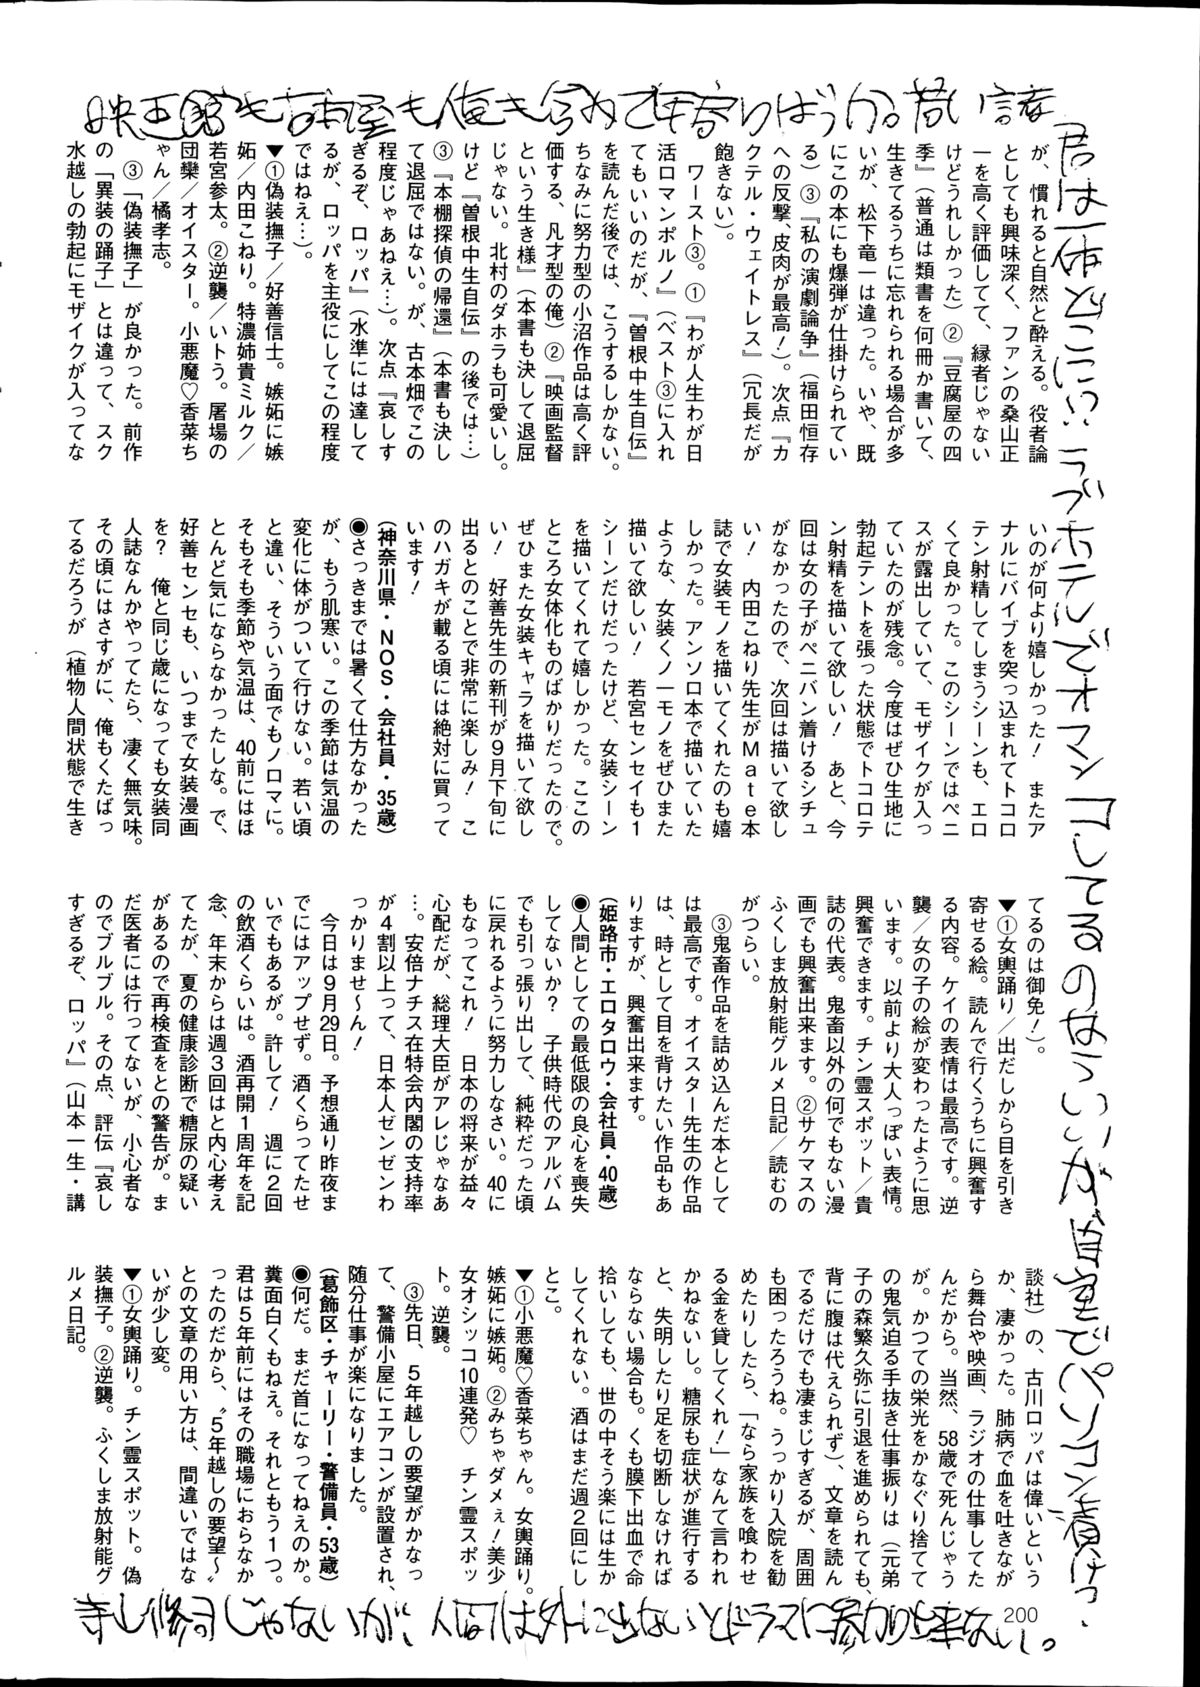 映画館も古本屋も俺も含めて年寄りばっか。若い諸
君は一体どこに!? ラブホテルでオマンコしてるのならいいが、自室でパソコン漬け?
が、慣れると自然と酔える。役者論
としても興味深く、ファンの桑山正
一を高く評価してて、縁者じゃない
けどうれしかった)②『豆腐屋の四
季』(普通は類書を何冊か書いて、
生きてるうちに忘れられる場合が多
いが、松下竜一は違った。いや、既
にこの本にも爆弾が仕掛けられてい
る)③『私の演劇論争』(福田恒存
への反撃、皮肉が最高!)。次点『カ
クテル・ウェイトレス』(冗長だが
飽きない)。
 ワースト③。①『わが人生わが日
活ロマンポルノ』(ベスト③に入れ
てもいいのだが、『曽根中生自伝』
を読んだ後では、こうするしかない。
ちなみに努力型の小沼作品は高く評
価する、凡才型の俺)②『映画監督
という生き様』(本書も決して退屈
じゃない。北村のダホラも可愛いし。
けど『曽根中生自伝』の後では…)
③『本棚探偵の帰還』(本書も決し
て退屈ではない。が、古本畑でこの
程度じゃあねえ…)。次点『哀しす
ぎるぞ、ロッパ』(水準には達して
るが、ロッパを主役にしてこの程度
ではねえ…)。
▼①偽装撫子/好善信士。嫉妬に嫉
妬/内田こねり。特濃姉貴ミルク/
若宮参太。②逆襲/いトう。屠場の
団欒/オイスター。小悪魔♡香菜ち
ゃん/橘孝志。
 ③「偽装撫子」が良かった。前作
の「異装の踊子」とは違って、スク
水越しの勃起にモザイクが入ってな
いのが何より嬉しかった! またア
ナルにバイブを突っ込まれてトコロ
テン射精してしまうシーンも、エロ
くて良かった。このシーンではペニ
スが露出していて、モザイクが入っ
ていたのが残念。今度はぜひ生地に
勃起テントを張った状態でトコロテ
ン射精を描いて欲しい! あと、今
回は女の子がペニバン着けるシチュ
がなかったので、次回は描いて欲し
い! 内田こねり先生がMate本
誌で女装モノを描いてくれたのも嬉
しかった。アンソロ本で描いていた
ような、女装くノ一モノをぜひまた
描いて欲しい! 若宮センセイも1
シーンだけだったけど、女装シーン
を描いてくれて嬉しかった。ここの
ところ女体化ものばかりだったので。
ぜひまた女装キャラを描いて欲し
い! 好善先生の新刊が9月下旬に
出るとのことで非常に楽しみ! こ
のハガキが載る頃には絶対に買って
います!
(神奈川県・NOS・会社員・35歳)
◉さっきまでは暑くて仕方なかった
が、もう肌寒い。この季節は気温の
変化に体がついて行けない。若い頃
と違い、そういう面でもノロマに。
そもそも季節や気温は、40前にはほ
とんど気にならなかったしな。で、
好善センセも、いつまで女装漫画
を? 俺と同じ歳になっても女装同
人誌なんかやってたら、凄く無気味。
その頃にはさすがに、俺もくたばっ
てるだろうが(植物人間状態で生き
てるのは御免!)。
▼①女輿踊り/出だしから目を引き
寄せる絵。読んで行くうちに興奮す
る内容。ケイの表情は最高です。逆
襲/女の子の絵が変わったように思
います。以前より大人っぽい表情。
興奮できます。チン霊スポット/貴
誌の代表。鬼畜以外の何でもない漫
画でも興奮出来ます。②サケマスの
ふくしま放射能グルメ日記/読むの
がつらい。
 ③鬼畜作品を詰め込んだ本として
は最高です。オイスター先生の作品
は、時として目を背けたい作品もあ
りますが、興奮出来ます。
(姫路市・エロタロウ・会社員・40歳)
◉人間としての最低限の良心を喪失
してないか? 子供時代のアルバム
でも引っ張り出して、純粋だった頃
に戻れるように努力しなさい。40に
もなってこれ! 日本の将来が益々
心配だが、総理大臣がアレじゃなあ
…。安倍ナチス在特会内閣の支持率
が4割以上って、日本人ゼンゼンわ
っかりませ〜ん!
 今日は9月29日。予想通り昨夜ま
でにはアップせず。酒くらってたせ
いでもあるが。許して! 週に2回
の飲酒くらいは。酒再開1周年を記
念、年末からは週3回はと内心考え
てたが、夏の健康診断で糖尿の疑い
があるので再検査をとの警告が。ま
だ医者には行ってないが、小心者な
のでブルブル。その点、評伝『哀し
すぎるぞ、ロッパ』(山本一生・講
談社)の、古川ロッパは偉いという
か、凄かった。肺病で血を吐きなが
ら舞台や映画、ラジオの仕事してた
んだから。当然、58歳で死んじゃう
が。かつての栄光をかなぐり捨てて
の鬼気迫る手抜き仕事振りは(元弟
子の森繁久弥に引退を進められても、
背に腹は代えられず)、文章を読ん
でるだけでも凄まじすぎるが、周囲
も困ったろうね。うっかり入院を勧
めたりしたら、「なら家族を喰わせ
る金を貸してくれ!」なんて言われ
かねないし。糖尿も症状が進行する
と、失明したり足を切断しなければ
ならない場合も。くも膜下出血で命
拾いしても、世の中そう楽には生か
してくれない。酒はまだ週2回にし
とこ。
▼①小悪魔♡香菜ちゃん。女輿踊り。
嫉妬に嫉妬。②みちゃダメぇ!美少
女オシッコ10連発♡ チン霊スポッ
ト。逆襲。
 ③先日、5年越しの要望がかなっ
て、警備小屋にエアコンが設置され、
随分仕事が楽になりました。
(葛飾区・チャーリー・警備員・53歳)
◉何だ。まだ首になってねえのか。
糞面白くもねえ。それともう1つ。
君は5年前にはその職場におらなか
ったのだから、〝5年越しの要望〟
との文章の用い方は、間違いではな
いが少し変。
▼①女輿踊り。チン霊スポット。偽
装撫子。②逆襲。ふくしま放射能グ
ルメ日記。
200
寺山修司じゃないが、人間は外に出ないとドラマに参加出来ない。